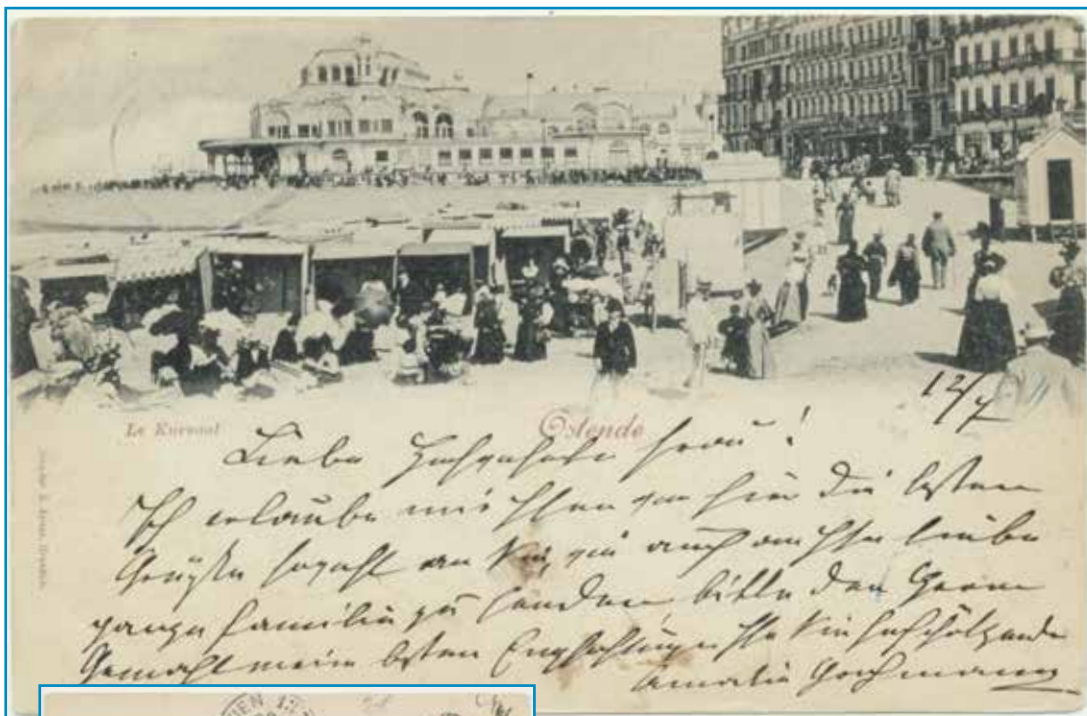 12/7
Le Kursaal
Ostende
Liebe Hochgeehrte Frau!
Ich erlaube mir Ihnen von hier die besten
Grüße sowohl an Sie, wie auch an Ihre liebe
ganze Familie zu senden, bitte den Herrn
Gemahl meine besten Empfehlungen Ihre Sie hochschätzende
Amalie
WIEN